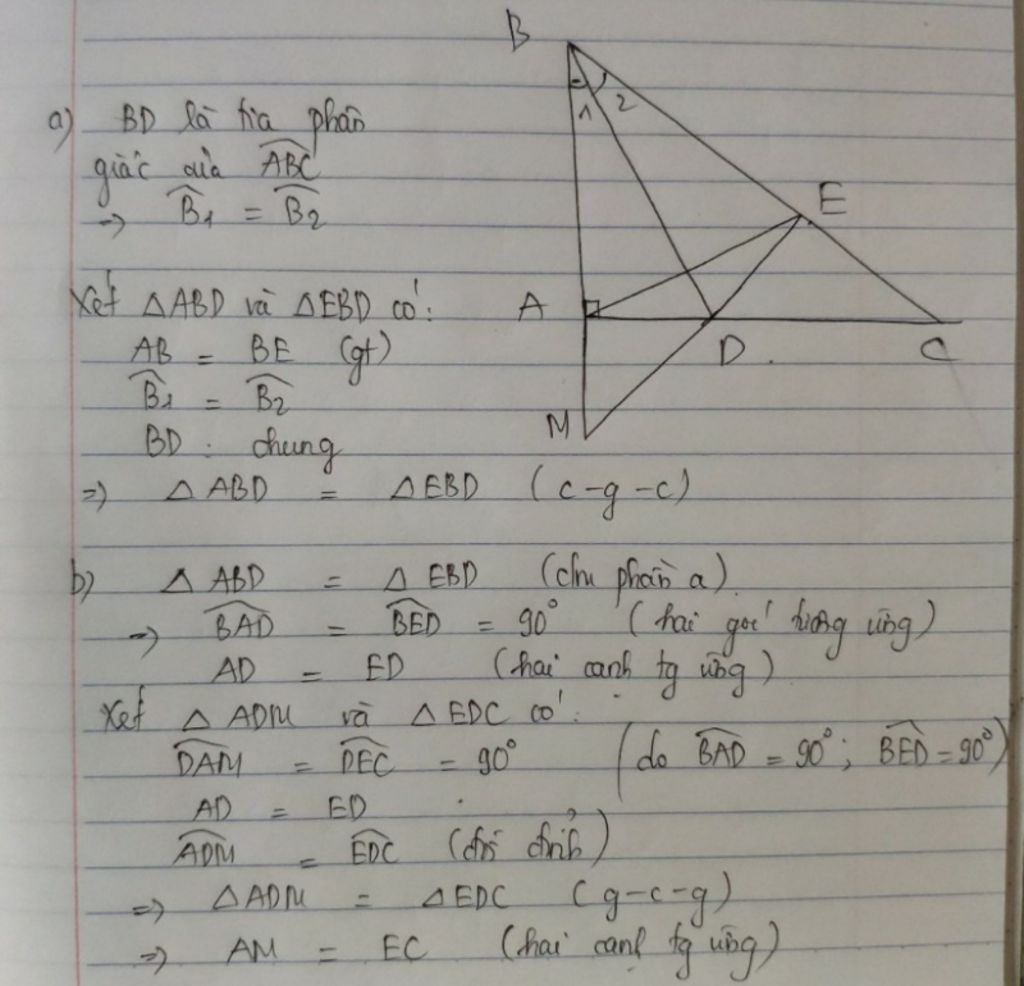 B
1
2
E
A
D
C
M
a) BD là tia phân
giác của \widehat{ABC}
=> \widehat{B}_1 = \widehat{B}_2
Xét △ABD và △EBD có:
AB = BE (gt)
\widehat{B}_1 = \widehat{B}_2
BD : chung
=> △ABD = △EBD (c-g-c)
b) △ABD = △EBD (cm phần a)
=> \widehat{BAD} = \widehat{BED} = 90° (hai góc tương ứng)
AD = ED (hai cạnh tg ứng)
Xét △ADM và △EDC có:
\widehat{DAM} = \widehat{DEC} = 90° (do \widehat{BAD} = 90°; \widehat{BED} = 90°)
AD = ED
\widehat{ADM} = \widehat{EDC} (đối đỉnh)
=> △ADM = △EDC (g-c-g)
=> AM = EC (hai cạnh tg ứng)